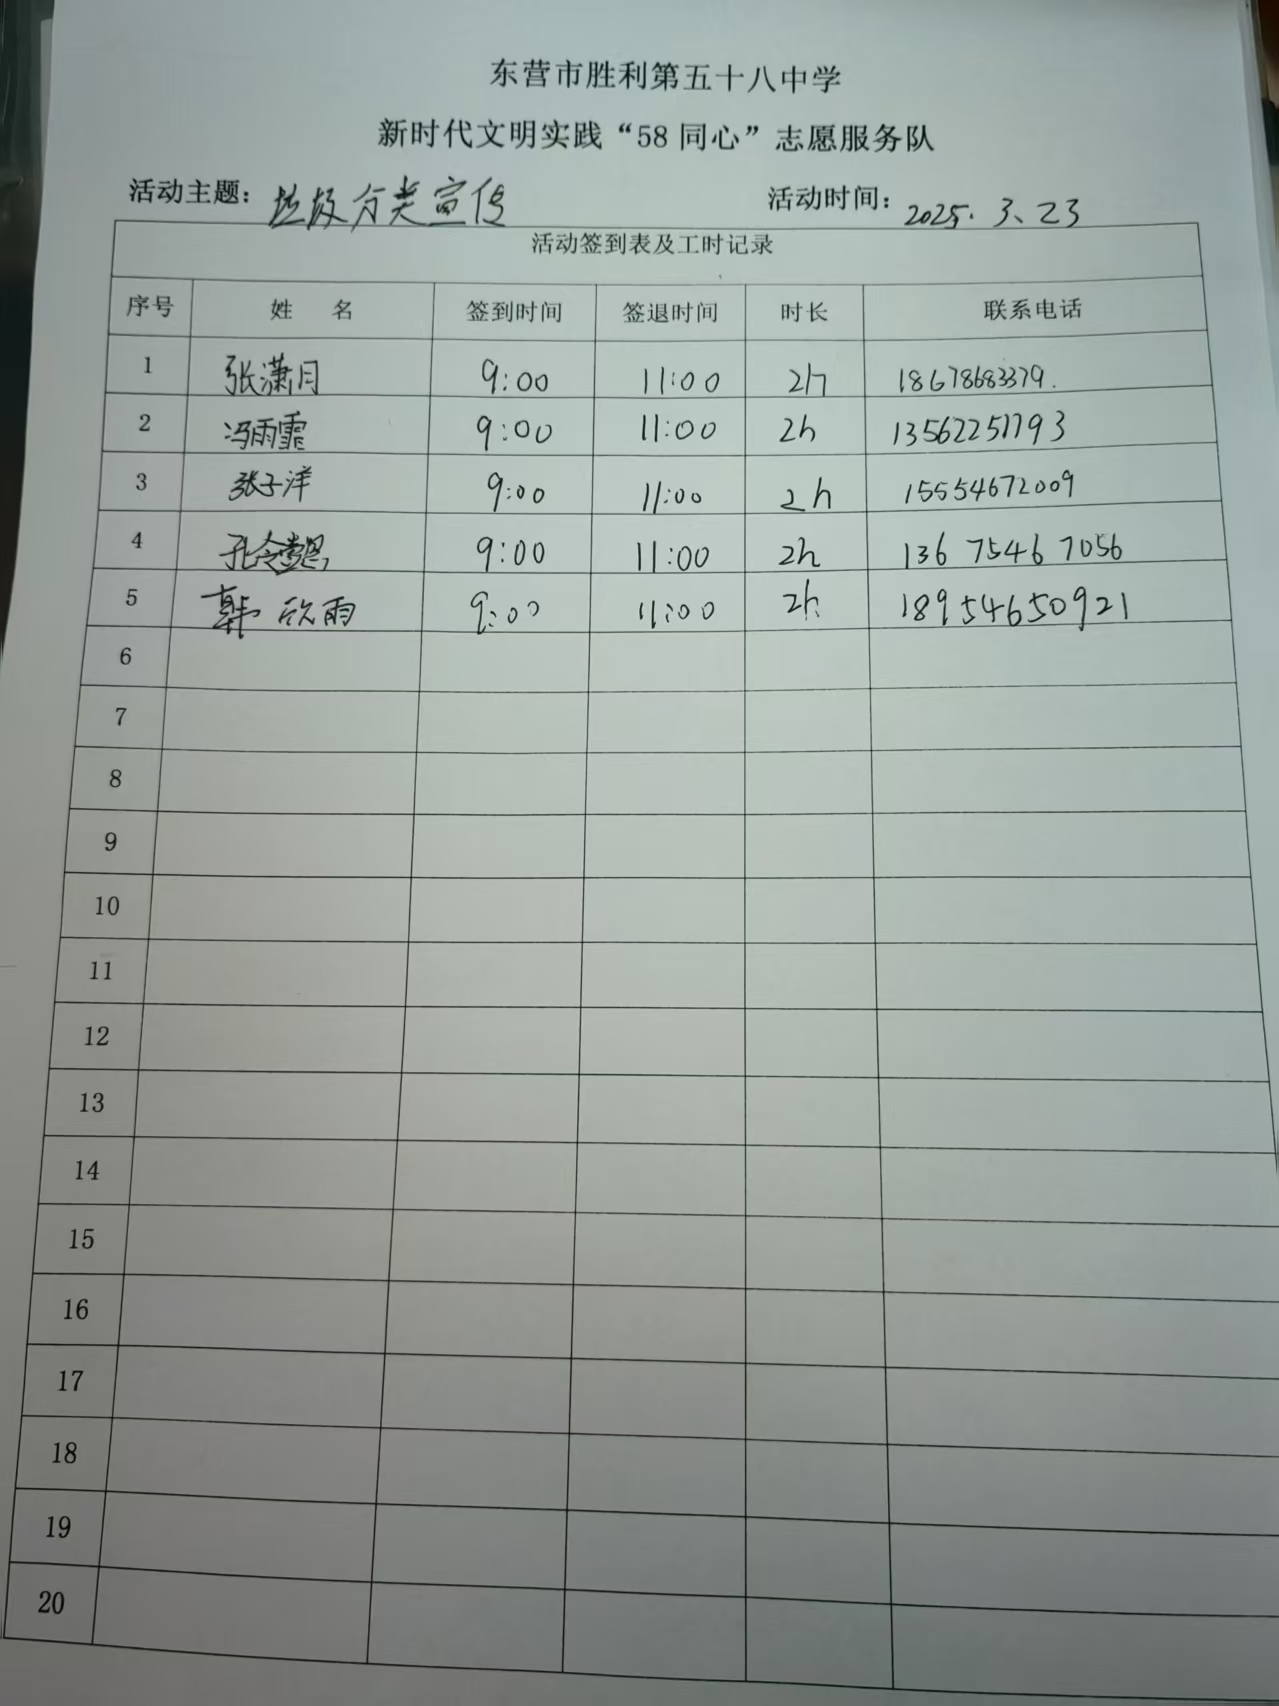 东营市胜利第五十八中学
新时代文明实践“58同心”志愿服务队
活动主题：垃圾分类宣传 活动时间：2025.3、23
活动签到表及工时记录
序号 姓名 签到时间 签退时间 时长 联系电话
1 张潇月 9:00 11:00 2h 18678683379.
2 冯雨霏 9:00 11:00 2h 13562251793
3 张子洋 9:00 11:00 2h 15554672009
4 孔令 9:00 11:00 2h 136 7546 7056
5 韩欣雨 9:00 11:00 2h 18954650921
6
7
8
9
10
11
12
13
14
15
16
17
18
19
20